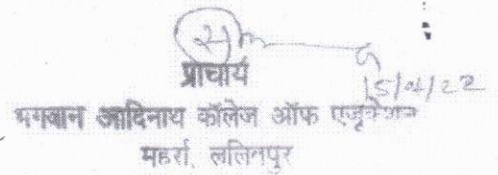 15/04/22
प्राचार्य
भगवान आदिनाथ कॉलेज ऑफ एजूकेशन
महर्रा, ललितपुर